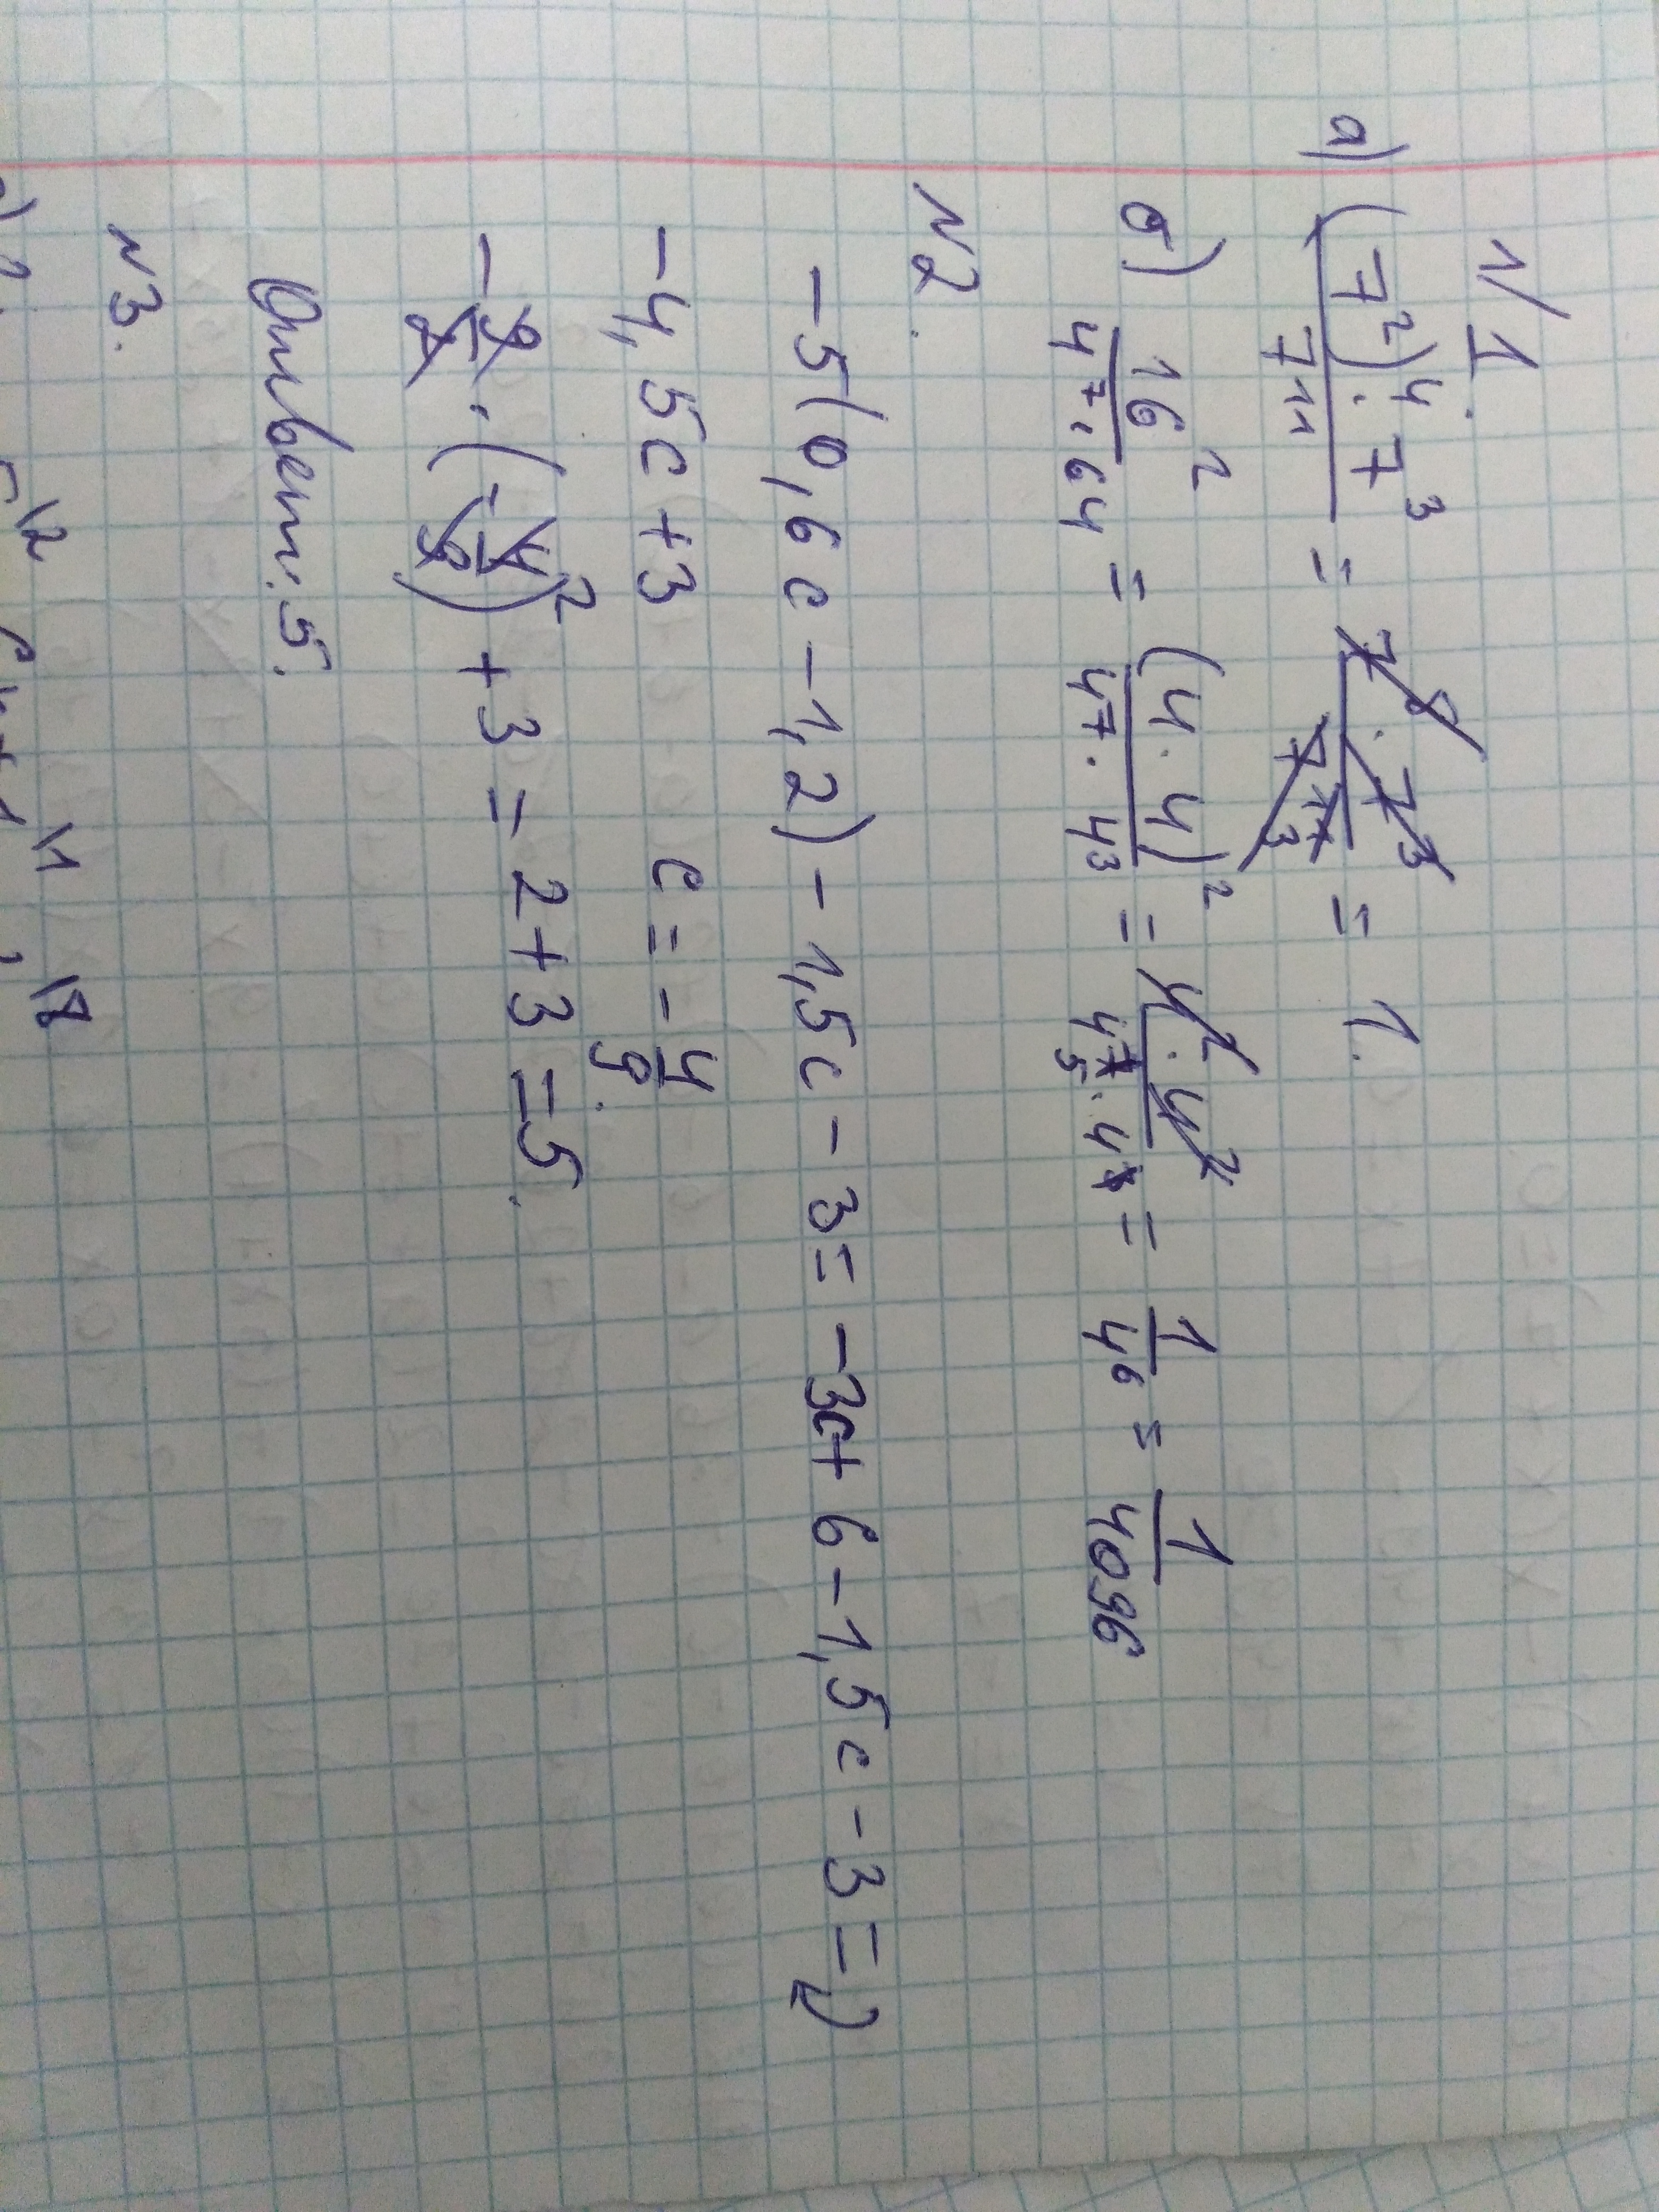 N 1.
а) (7²)⁴ · 7³ / 7¹¹ = 7⁸ · 7³ / 7¹¹ ³ = 1.
б) 16² / 4⁷ · 64 = (4 · 4)² / 4⁷ · 4³ = 4² · 4² / 4⁷ ⁵ · 4 = 1 / 4⁶ = 1 / 4096
N2.
-5(0,6c - 1,2) - 1,5c - 3 = -3c + 6 - 1,5c - 3 =
-4,5c + 3 c = - 4/9.
- 9/2 · (- 4/9)² + 3 = 2 + 3 = 5.
Ответ: 5.
N3.